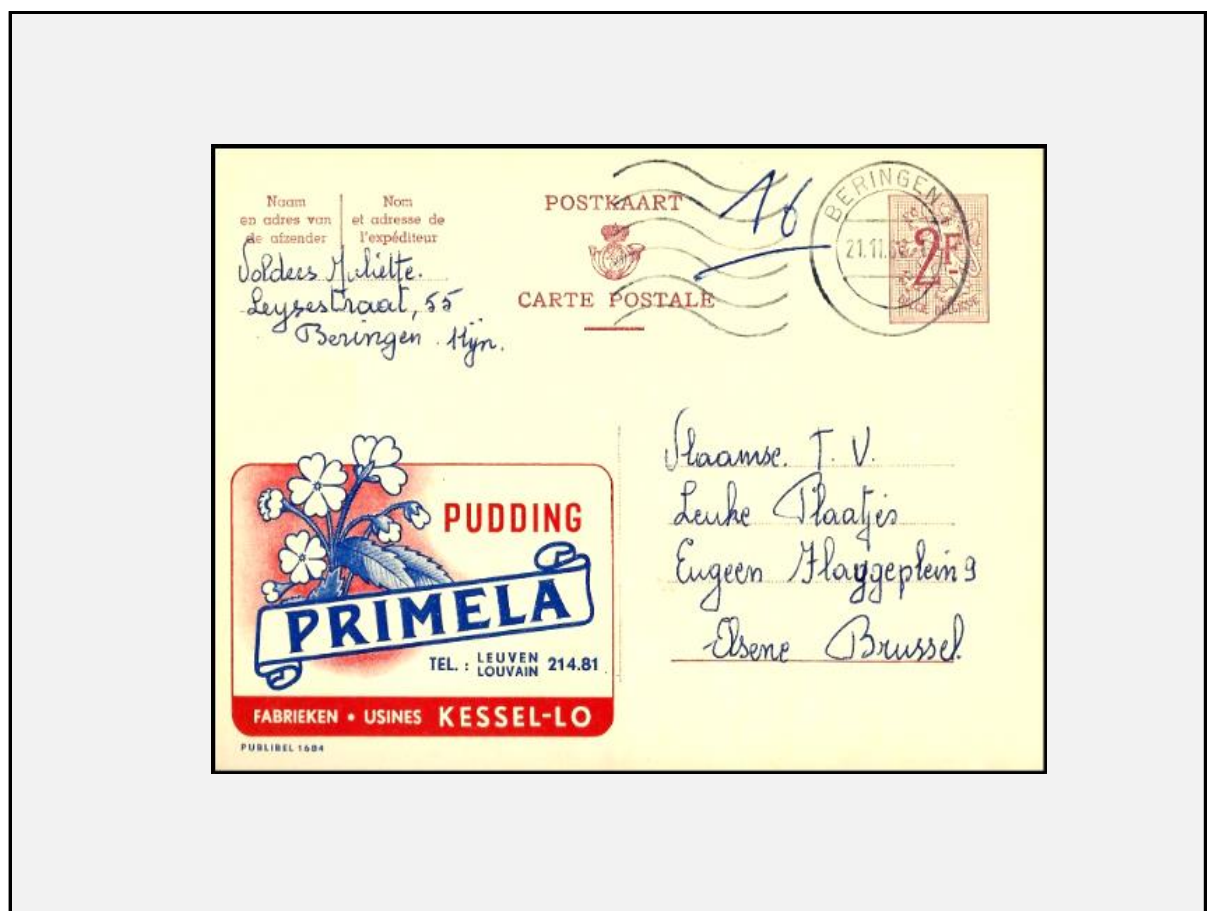 Naam
en adres van
de afzender
Nom
et adresse de
l'expéditeur
Juliette.
straat, 55
Beringen Mijn.
POSTKAART
CARTE POSTALE
16
BERINGEN
21.11.6
2F
BELGIE BELGIQUE
Vlaamse. T. V.
Leuke Plaatjes
Eugeen Flageyplein 9
Elsene Brussel.
PUDDING
PRIMELA
TEL. : LEUVEN
LOUVAIN 214.81
FABRIEKEN • USINES KESSEL-LO
PUBLIBEL 1684